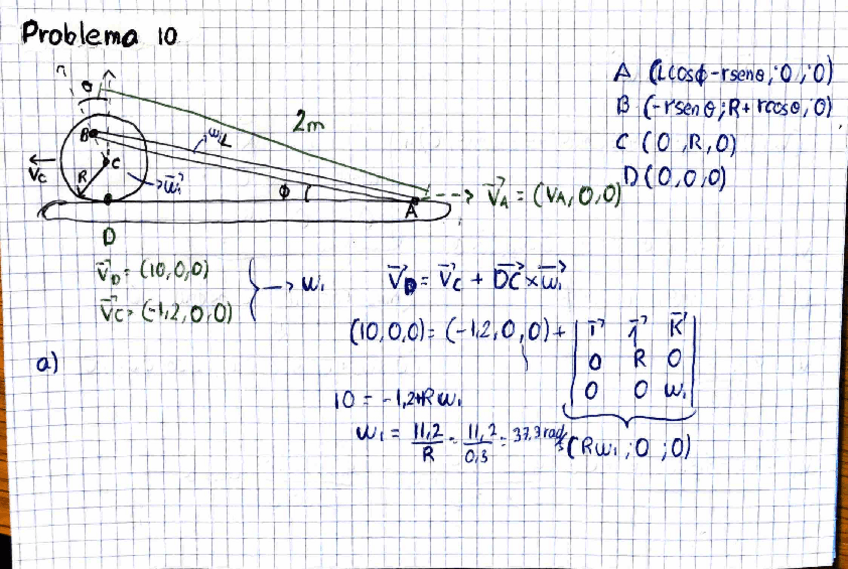 Problema 10
A (Lcosϕ-rsenθ; 0 ; 0)
B (-rsenθ; R+rcosθ, 0)
C (0 , R, 0)
D (0, 0, 0)
θ
B
C
R
V⃗c
ω⃗₁
2m
ϕ
A
V⃗A = (VA, 0, 0)
D
V⃗D = (10,0,0)
V⃗c = (-1,2,0,0)
→ ω₁
V⃗D = V⃗c + D⃗C × ω⃗₁
(10,0,0) = (-1,2,0,0) + | i⃗ j⃗ k⃗ |
| 0 R 0 |
| 0 0 ω₁ |
(Rω₁; 0 ; 0)
a)
10 = -1,2+Rω₁
ω₁ = 11,2/R = 11,2/0,3 = 37,3 rad/s